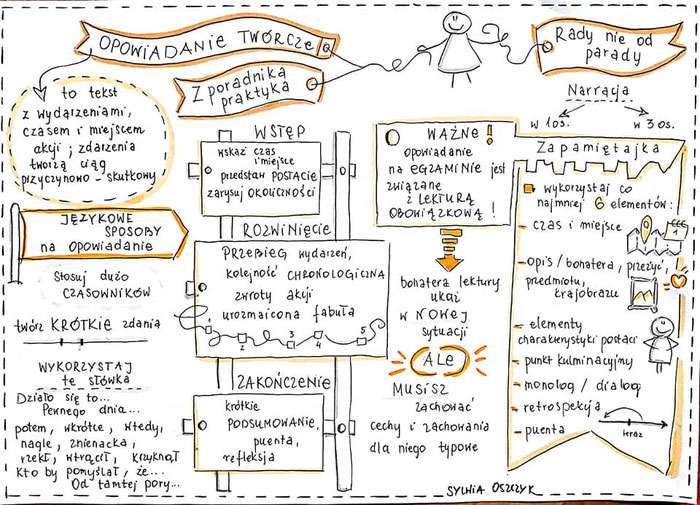 OPOWIADANIE TWÓRCZE
Z poradnika
praktyka
Rady nie od
parady
to tekst
z wydarzeniami,
czasem i miejscem
akcji; zdarzenia
tworzą ciąg
przyczynowo-skutkowy
JĘZYKOWE
SPOSOBY
na OPOWIADANIE
Stosuj dużo
CZASOWNIKÓW
twórz KRÓTKIE zdania
WYKORZYSTAJ
te słówka
Działo się to...
Pewnego dnia...
potem, wkrótce, wtedy,
nagle, znienacka,
rzekł, wtrącił, krzyknął
Kto by pomyślał, że...
Od tamtej pory...
WSTĘP
wskaż czas
i miejsce
przedstaw POSTACIE
zarysuj OKOLICZNOŚCI
ROZWINIĘCIE
PRZEBIEG wydarzeń,
kolejność CHRONOLOGICZNA
zwroty akcji
urozmaicona fabuła
1 2 3 4 5
ZAKOŃCZENIE
krótkie
PODSUMOWANIE,
puenta,
refleksja
WAŻNE!
opowiadanie
na EGZAMINIE jest
związane
z LEKTURĄ
OBOWIĄZKOWĄ!
bohatera lektury
ukaż
w NOWEJ
sytuacji
ALE
MUSISZ
zachować
cechy i zachowania
dla niego typowe
Narracja
w 1 os. w 3 os.
Zapamiętajka
wykorzystaj co
najmniej 6 elementów:
- czas i miejsce
1
- opis / bohatera, przeżyć,
przedmiotu,
krajobrazu
- elementy
charakterystyki postaci
- punkt kulminacyjny
- monolog / dialog
- retrospekcja
- puenta
teraz
SYLWIA OSZCZYK